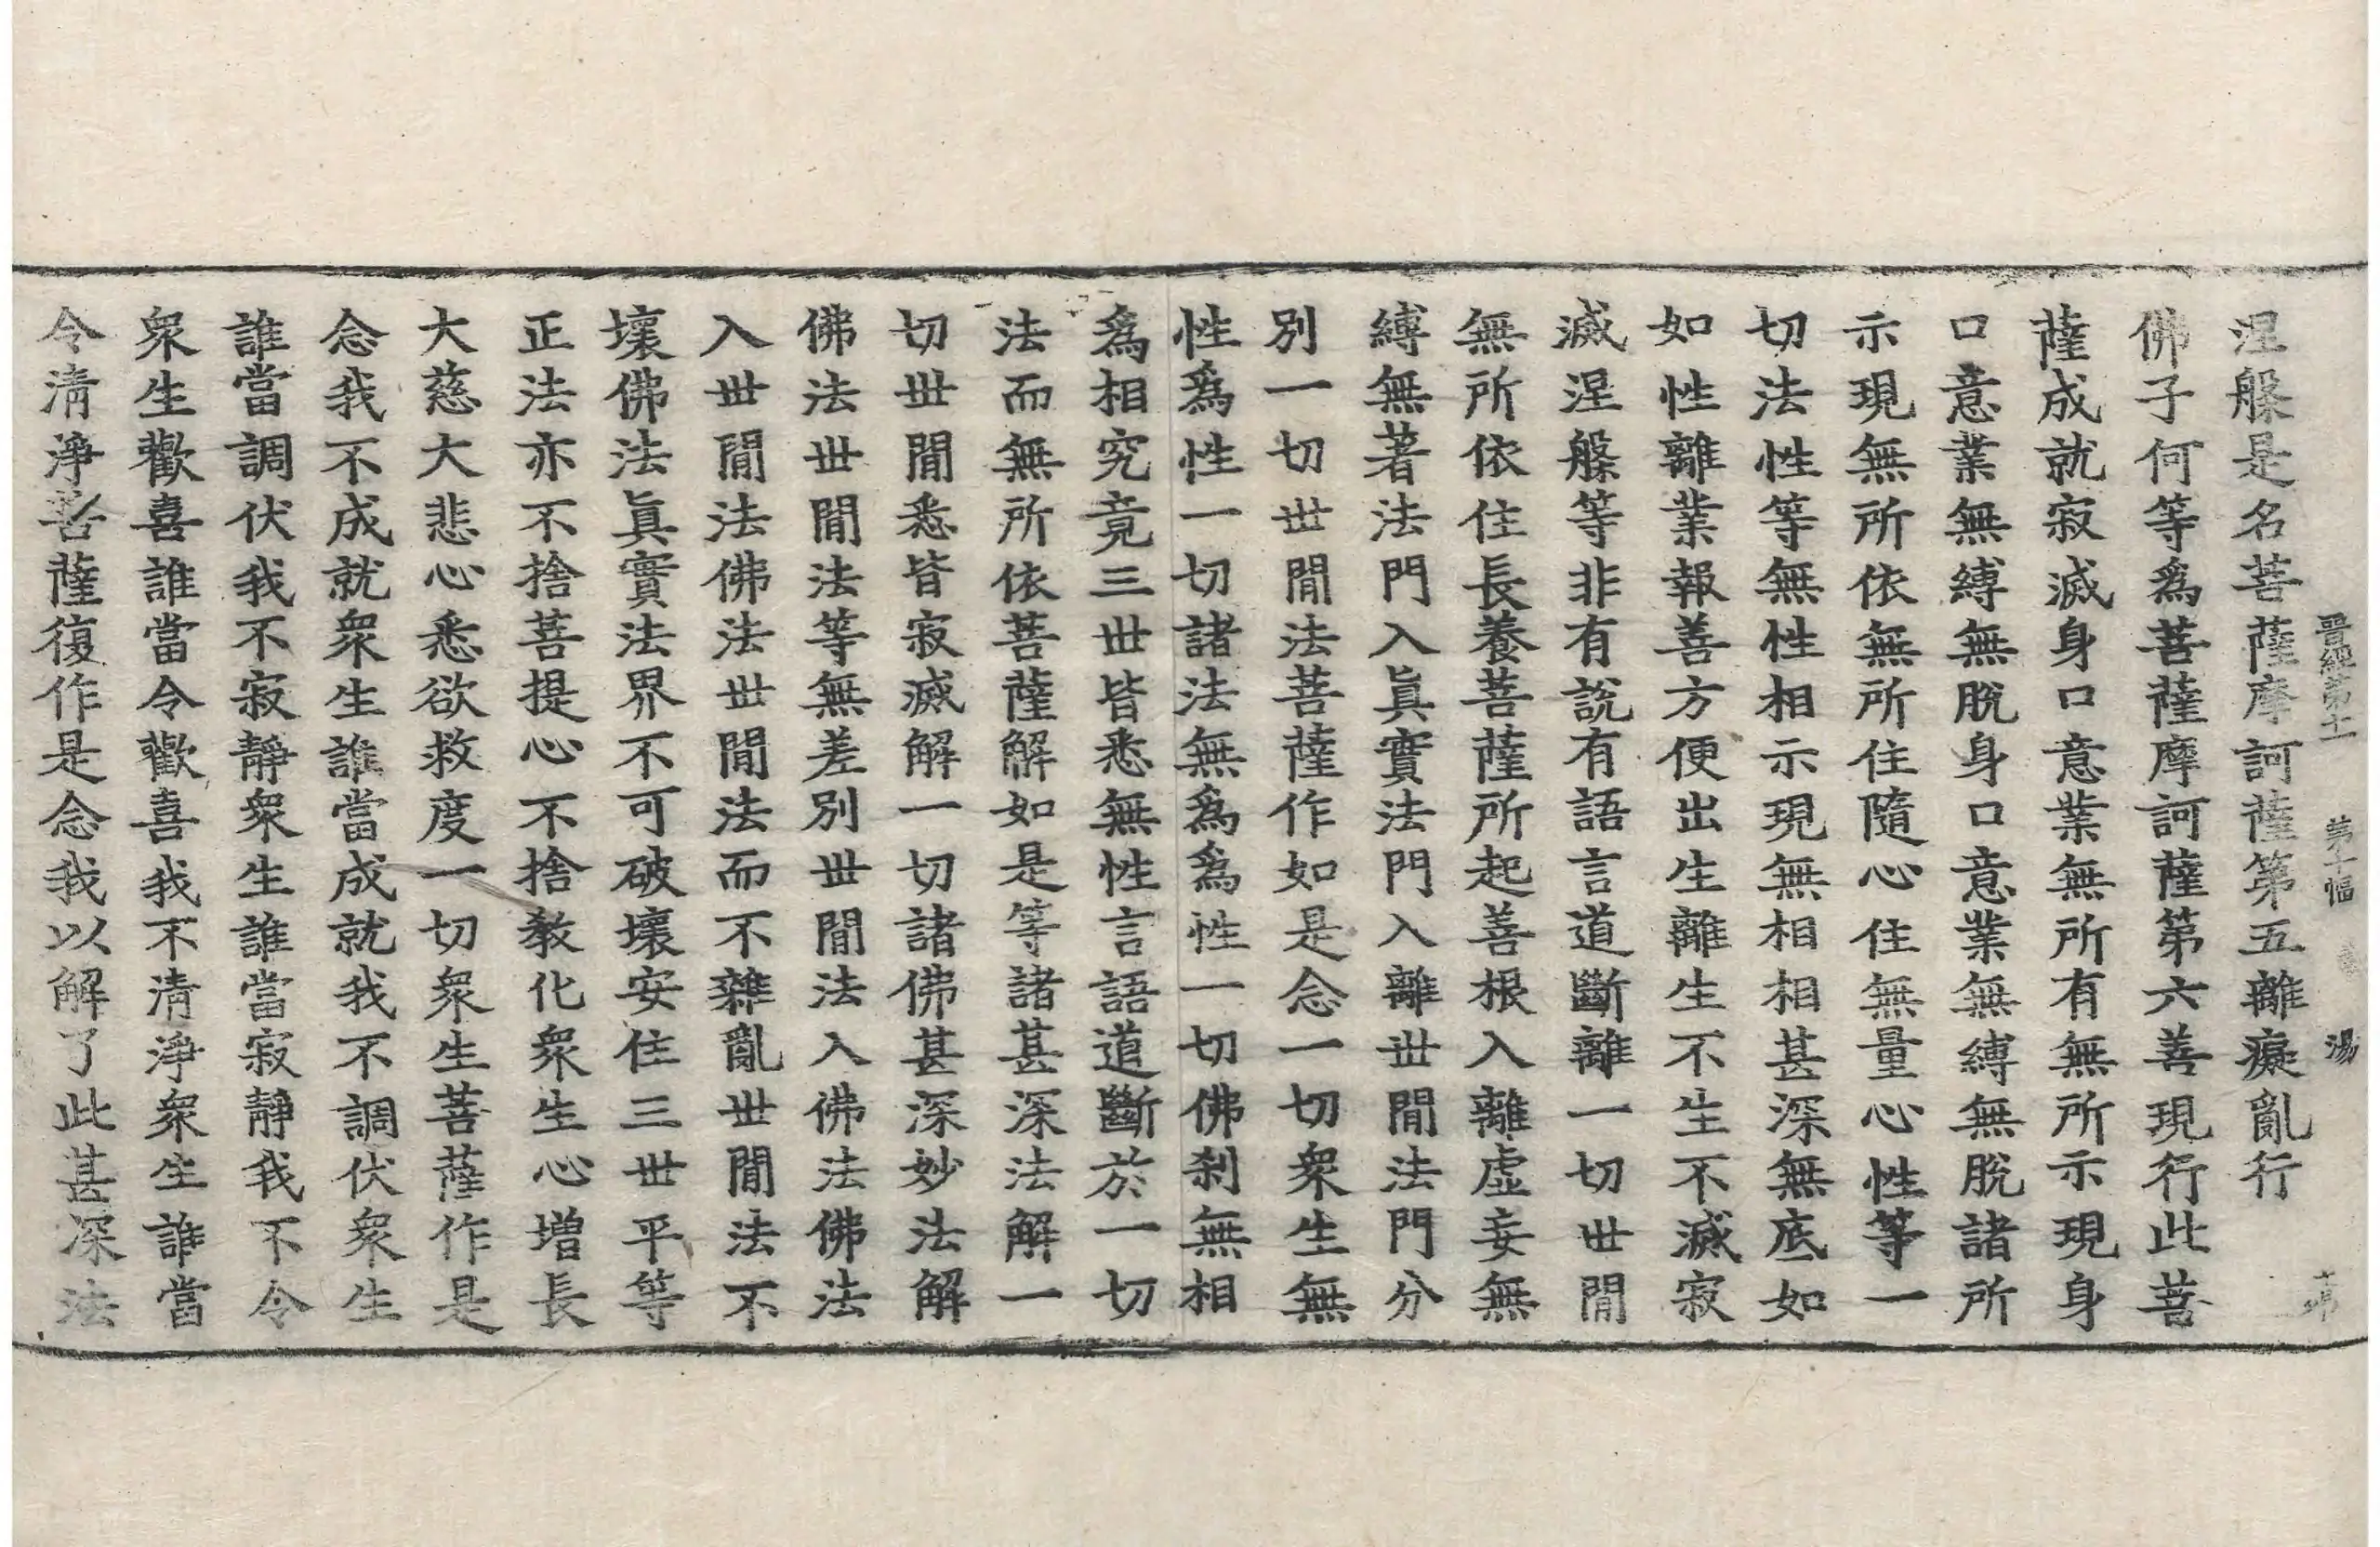 晋經第十一 第十幅 湯
涅槃是名菩薩摩訶薩第五離癡亂行
佛子何等爲菩薩摩訶薩第六善現行此菩
薩成就寂滅身口意業無所有無所示現身
口意業無縛無脫身口意業無縛無脫諸所
示現無所依無所住隨心住無量心性等一
切法性等無性相示現無相相甚深無底如
如性離業報善方便出生離生不生不滅寂
滅涅槃等非有說有語言道斷離一切世閒
無所依住長養菩薩所起善根入離虛妄無
縛無著法門入眞實法門入離世閒法門分
別一切世閒法菩薩作如是念一切衆生無
性爲性一切諸法無爲爲性一切佛刹無相
爲相究竟三世皆悉無性言語道斷於一切
法而無所依菩薩解如是等諸甚深法解一
切世閒悉皆寂滅解一切諸佛甚深妙法解
佛法世閒法等無差別世閒法入佛法佛法
入世閒法佛法世閒法而不雜亂世閒法不
壞佛法眞實法界不可破壞安住三世平等
正法亦不捨菩提心不捨教化衆生心增長
大慈大悲心悉欲救度一切衆生菩薩作是
念我不成就衆生誰當成就我不調伏衆生
誰當調伏我不寂靜衆生誰當寂靜我不令
衆生歡喜誰當令歡喜我不清淨衆生誰當
令清淨菩薩復作是念我以解了此甚深法